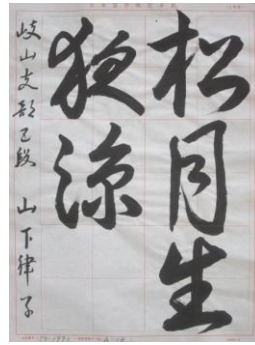 松月生
夜涼
岐山支部 弐段 山下律子